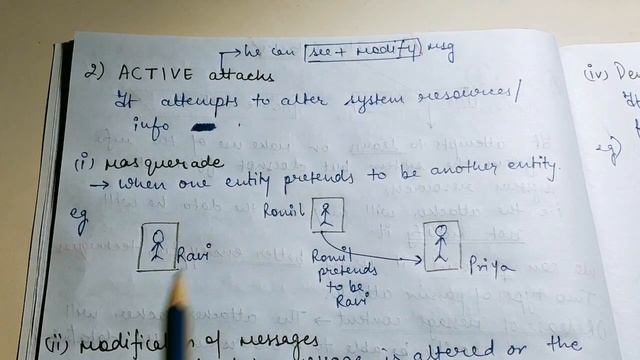 he can see + modify msg
2) ACTIVE attacks
It attempts to alter system resources/
info
(i) Masquerade
→ when one entity pretends to be another entity.
eg
Ravi
Romil
Romil
pretends
to be
Ravi
Priya
(ii) Modification of messages
is altered or the
(iv) De
It
eg)